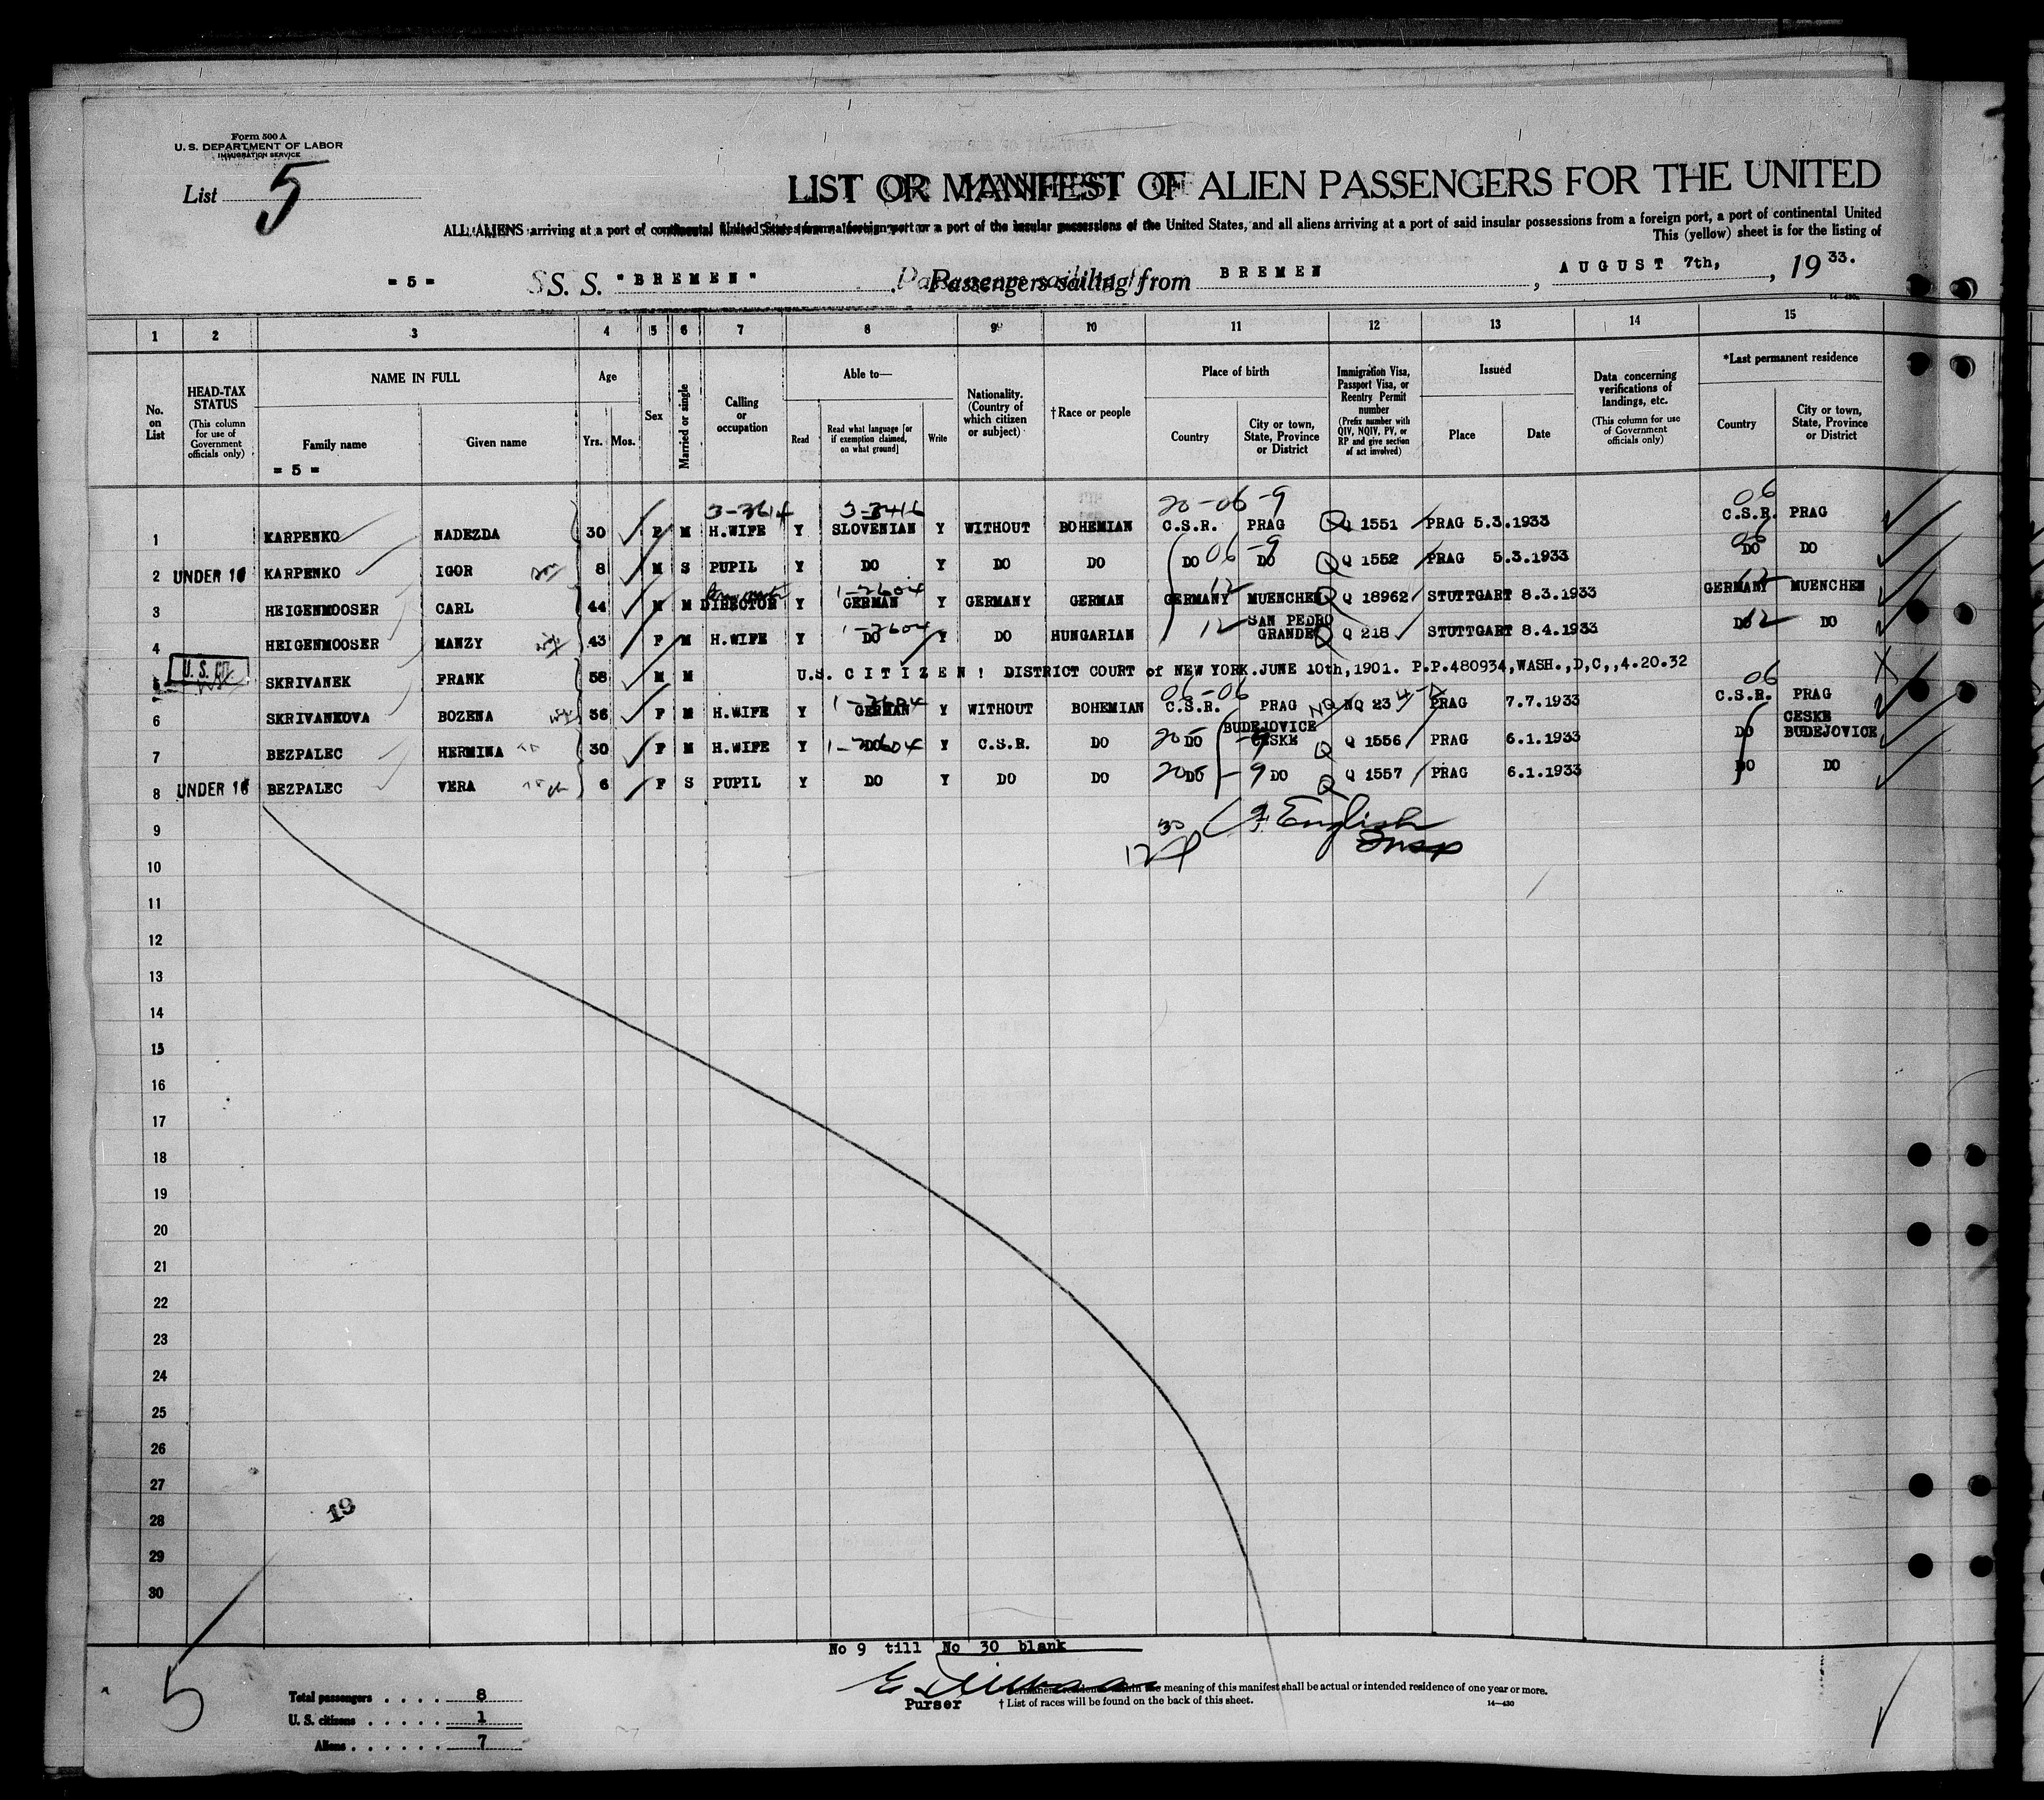 Form 500 A
U. S. DEPARTMENT OF LABOR
IMMIGRATION SERVICE
List 5
LIST OR MANIFEST OF ALIEN PASSENGERS FOR THE UNITED
ALL ALIENS arriving at a port of continental United States from a foreign port or a port of the insular possessions of the United States, and all aliens arriving at a port of said insular possessions from a foreign port, a port of continental United
This (yellow) sheet is for the listing of
= 5 = S. S. "BREMEN" Passengers sailing from BREMEN, AUGUST 7th, 1933.
14—430
1 2 3 4 5 6 7 8 9 10 11 12 13 14 15
No. on List
HEAD-TAX STATUS
(This column for use of Government officials only)
NAME IN FULL
Family name
Given name
= 5 =
Age
Yrs. Mos.
Sex
Married or single
Calling or occupation
Able to—
Read
Read what language [or if exemption claimed, on what ground]
Write
Nationality. (Country of which citizen or subject)
†Race or people
Place of birth
Country
City or town, State, Province or District
Immigration Visa, Passport Visa, or Reentry Permit number
(Prefix number with QIV, NQIV, PV, or RP and give section of act involved)
Issued
Place
Date
Data concerning verifications of landings, etc.
(This column for use of Government officials only)
*Last permanent residence
Country
City or town, State, Province or District
3-3614 3-3416 20-06-9 06
1 KARPENKO NADEZDA 30 F M H.WIFE Y SLOVENIAN Y WITHOUT BOHEMIAN C.S.R. PRAG Q 1551 PRAG 5.3.1933 C.S.R. PRAG
06 -9 06
2 UNDER 16 KARPENKO IGOR son 8 M S PUPIL Y DO Y DO DO DO DO Q 1552 PRAG 5.3.1933 DO DO
1-2604 12 12
3 HEIGENMOOSER CARL 44 M M DIRECTOR Y GERMAN Y GERMANY GERMAN GERMANY MUENCHEN Q 18962 STUTTGART 8.3.1933 GERMANY MUENCHEN
1-2604 12 12
4 HEIGENMOOSER MANZY wife 43 F M H.WIFE Y DO Y DO HUNGARIAN SAN PEDRO GRANDE Q 218 STUTTGART 8.4.1933 DO DO
U. S. CIT.
5 SKRIVANEK FRANK 58 M M U.S. CITIZEN! DISTRICT COURT of NEW YORK.JUNE 10th,1901. P.P.480934,WASH.,D,C,,4.20.32
1-2604 06-06 06
6 SKRIVANKOVA BOZENA wife 36 F M H.WIFE Y GERMAN Y WITHOUT BOHEMIAN C.S.R. PRAG NQ 23 4-D PRAG 7.7.1933 C.S.R. PRAG
1-2604
7 BEZPALEC HERMINA 30 F M H.WIFE Y DO Y C.S.R. DO DO BUDEJOVICE CESKE Q 1556 PRAG 6.1.1933 DO CESKE BUDEJOVICE
8 UNDER 16 BEZPALEC VERA 6 F S PUPIL Y DO Y DO DO DO DO Q 1557 PRAG 6.1.1933 DO DO
9 English
Insp
10
11
12
13
14
15
16
17
18
19
20
21
22
23
24
25
26
27
28 19
29
30
No 9 till No 30 blank
Purser
meaning of this manifest shall be actual or intended residence of one year or more.
† List of races will be found on the back of this sheet. 14—430
5
Total passengers . . . . 8
U. S. citizens . . . . . 1
Aliens . . . . . . 7